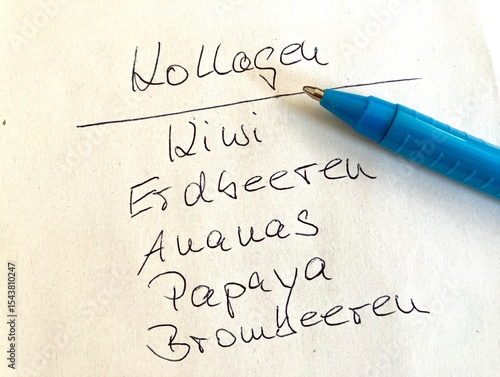 Kollagen
Kiwi
Erdbeeren
Ananas
Papaya
Brombeeren
Adobe Stock | #1543810247